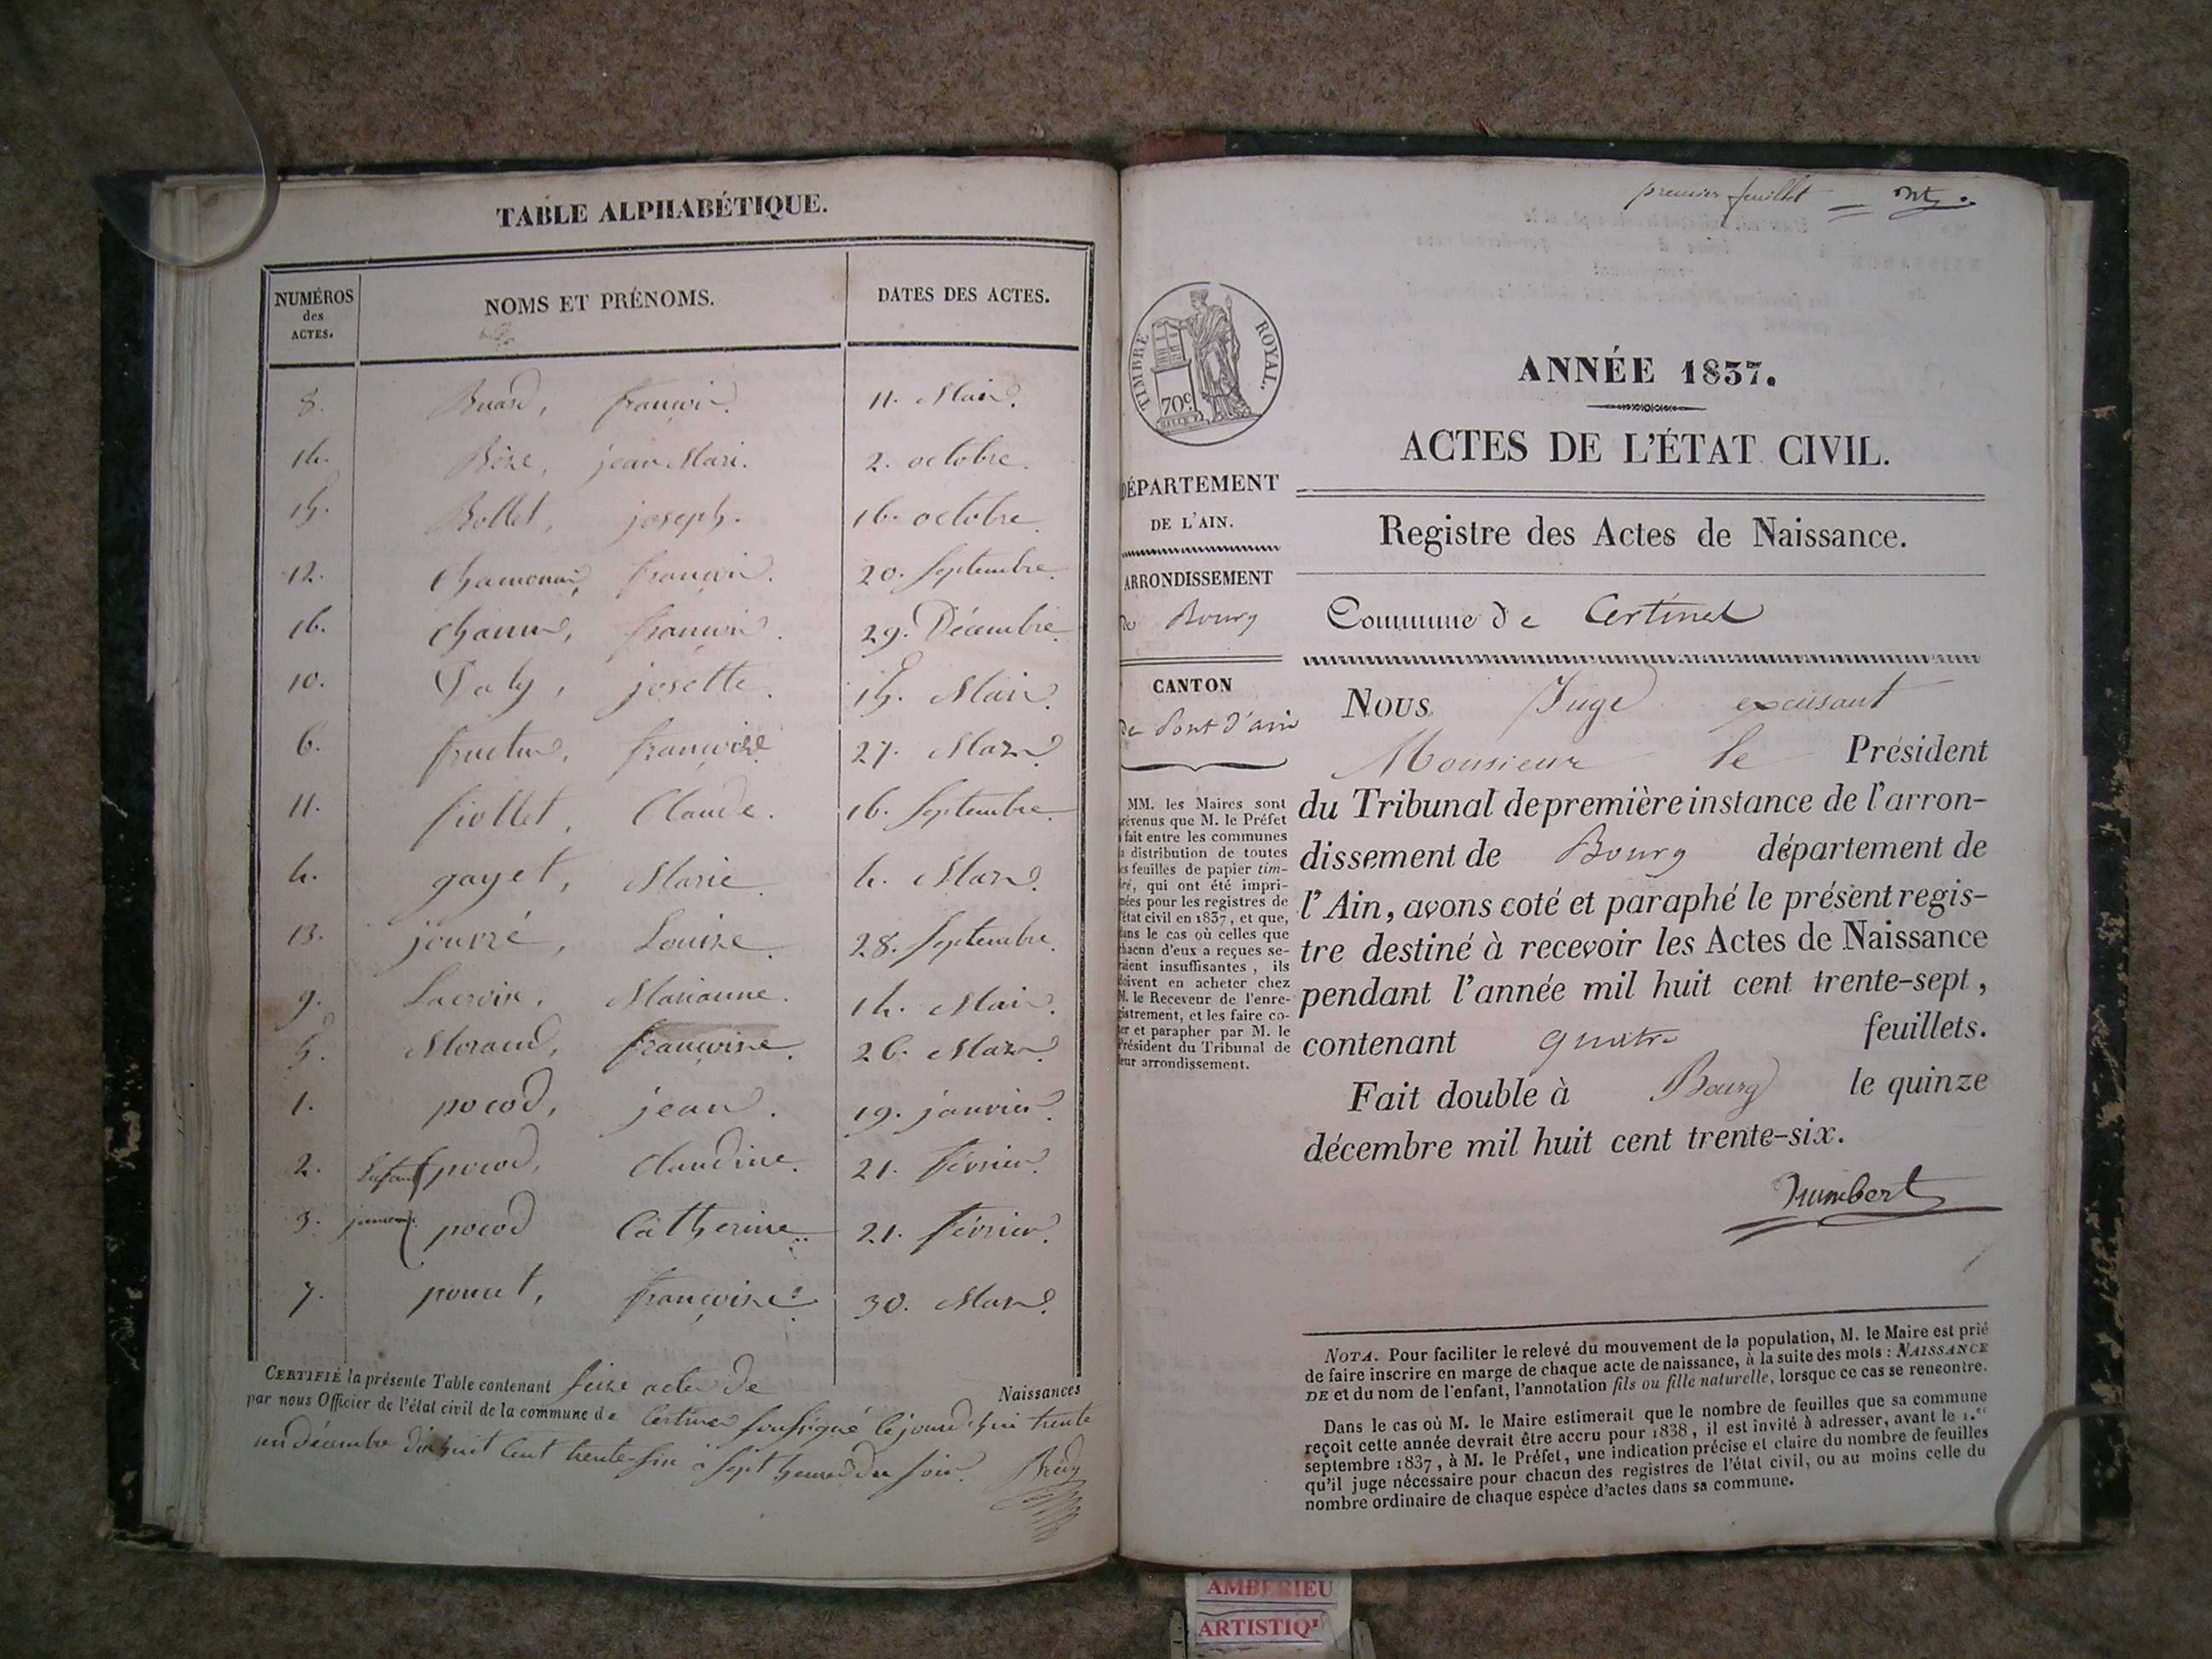 TABLE ALPHABÉTIQUE.
NUMÉROS des ACTES. NOMS ET PRÉNOMS. DATES DES ACTES.
8. françois. 11. Mai
14. Bôze, jean Marie. 2. octobre.
15. Bollet, joseph. 16. octobre.
12. françois. 20. Septembre.
16. françois. 29. Décembre.
10. Daly, josette. 15. Mai
6. françoise 27. Mars
11. fiollet, Claude. 16. Septembre.
4. gayet, Marie. 4. Mars.
13. jouvré, Louise. 28. Septembre.
9. Lacroix, Marianne. 14. Mai.
5. Morand, françoise. 26. Mars
1. pocod, jean. 19. janvier.
2. pocod, Claudine. 21. février.
3. pocod Catherine 21. février.
7. poncet, françoise. 30. Mars.
CERTIFIÉ la présente Table contenant seize actes de Naissances
par nous Officier de l'état civil de la commune de soussigné cejourd'hui trente
un décembre dix huit cent trente-six à sept heures du soir.
premier feuillet
TIMBRE ROYAL.
70c
DÉPARTEMENT
DE L'AIN.
ARRONDISSEMENT
de Bourg
CANTON
de Pont d'ain
MM. les Maires sont
prévenus que M. le Préfet
a fait entre les communes
la distribution de toutes
les feuilles de papier tim-
bré, qui ont été impri-
mées pour les registres de
l'état civil en 1837, et que,
dans le cas où celles que
chacun d'eux a reçues se-
raient insuffisantes, ils
doivent en acheter chez
M. le Receveur de l'enre-
gistrement, et les faire co-
ter et parapher par M. le
Président du Tribunal de
leur arrondissement.
ANNÉE 1837.
ACTES DE L'ÉTAT CIVIL.
Registre des Actes de Naissance.
Commune de Certines
Nous Juge excusant
Monsieur le Président
du Tribunal de première instance de l'arron-
dissement de Bourg département de
l'Ain, avons coté et paraphé le présent regis-
tre destiné à recevoir les Actes de Naissance
pendant l'année mil huit cent trente-sept,
contenant quatre feuillets.
Fait double à Bourg le quinze
décembre mil huit cent trente-six.
Humbert
NOTA. Pour faciliter le relevé du mouvement de la population, M. le Maire est prié
de faire inscrire en marge de chaque acte de naissance, à la suite des mots : NAISSANCE
DE et du nom de l'enfant, l'annotation fils ou fille naturelle, lorsque ce cas se rencontre.
Dans le cas où M. le Maire estimerait que le nombre de feuilles que sa commune
reçoit cette année devrait être accru pour 1838, il est invité à adresser, avant le 1.er
septembre 1837, à M. le Préfet, une indication précise et claire du nombre de feuilles
qu'il juge nécessaire pour chacun des registres de l'état civil, ou au moins celle du
nombre ordinaire de chaque espèce d'actes dans sa commune.
AMBERIEU
ARTISTIQ